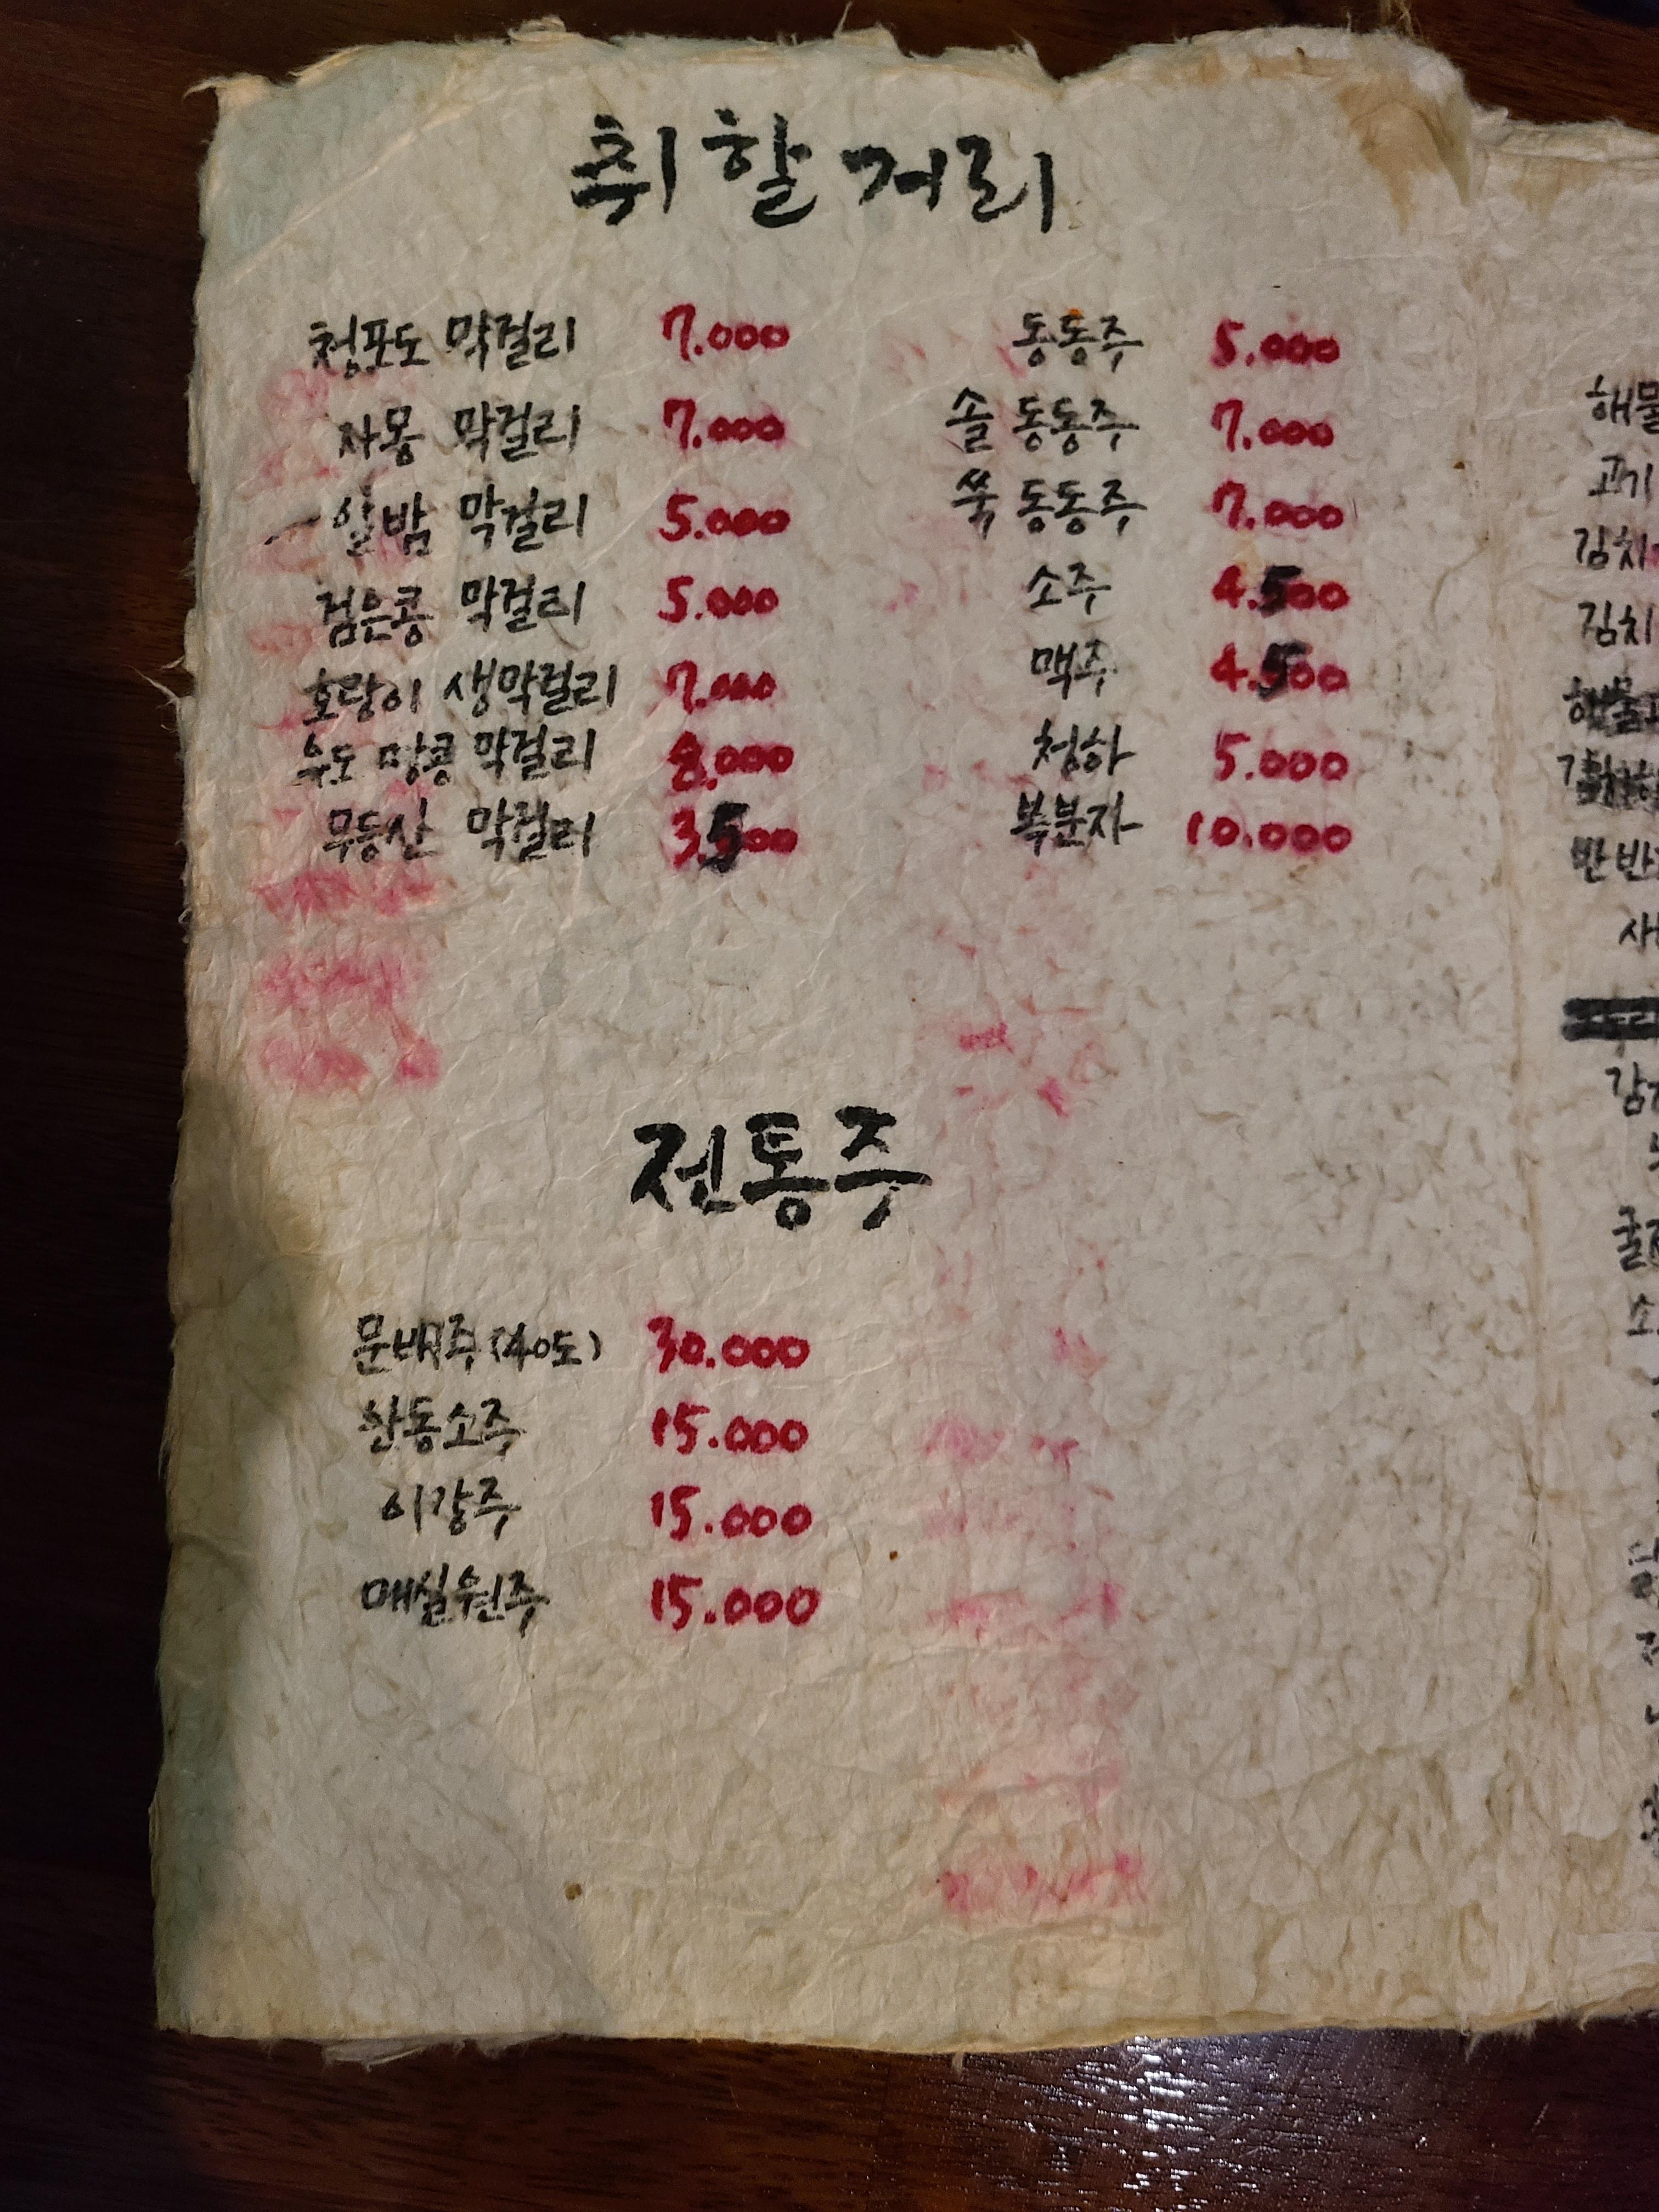 취할거리
청포도 막걸리 7.000
자몽 막걸리 7.000
알밤 막걸리 5.000
검은콩 막걸리 5.000
호랑이 생막걸리 7.000
우도 땅콩 막걸리 8.000
무등산 막걸리 3.500
동동주 5.000
솔 동동주 7.000
쑥 동동주 7.000
소주 4.500
맥주 4.500
청하 5.000
복분자 10.000
전통주
문배주(40도) 30.000
안동소주 15.000
이강주 15.000
매실원주 15.000
해물
고기
김치
김치
반반